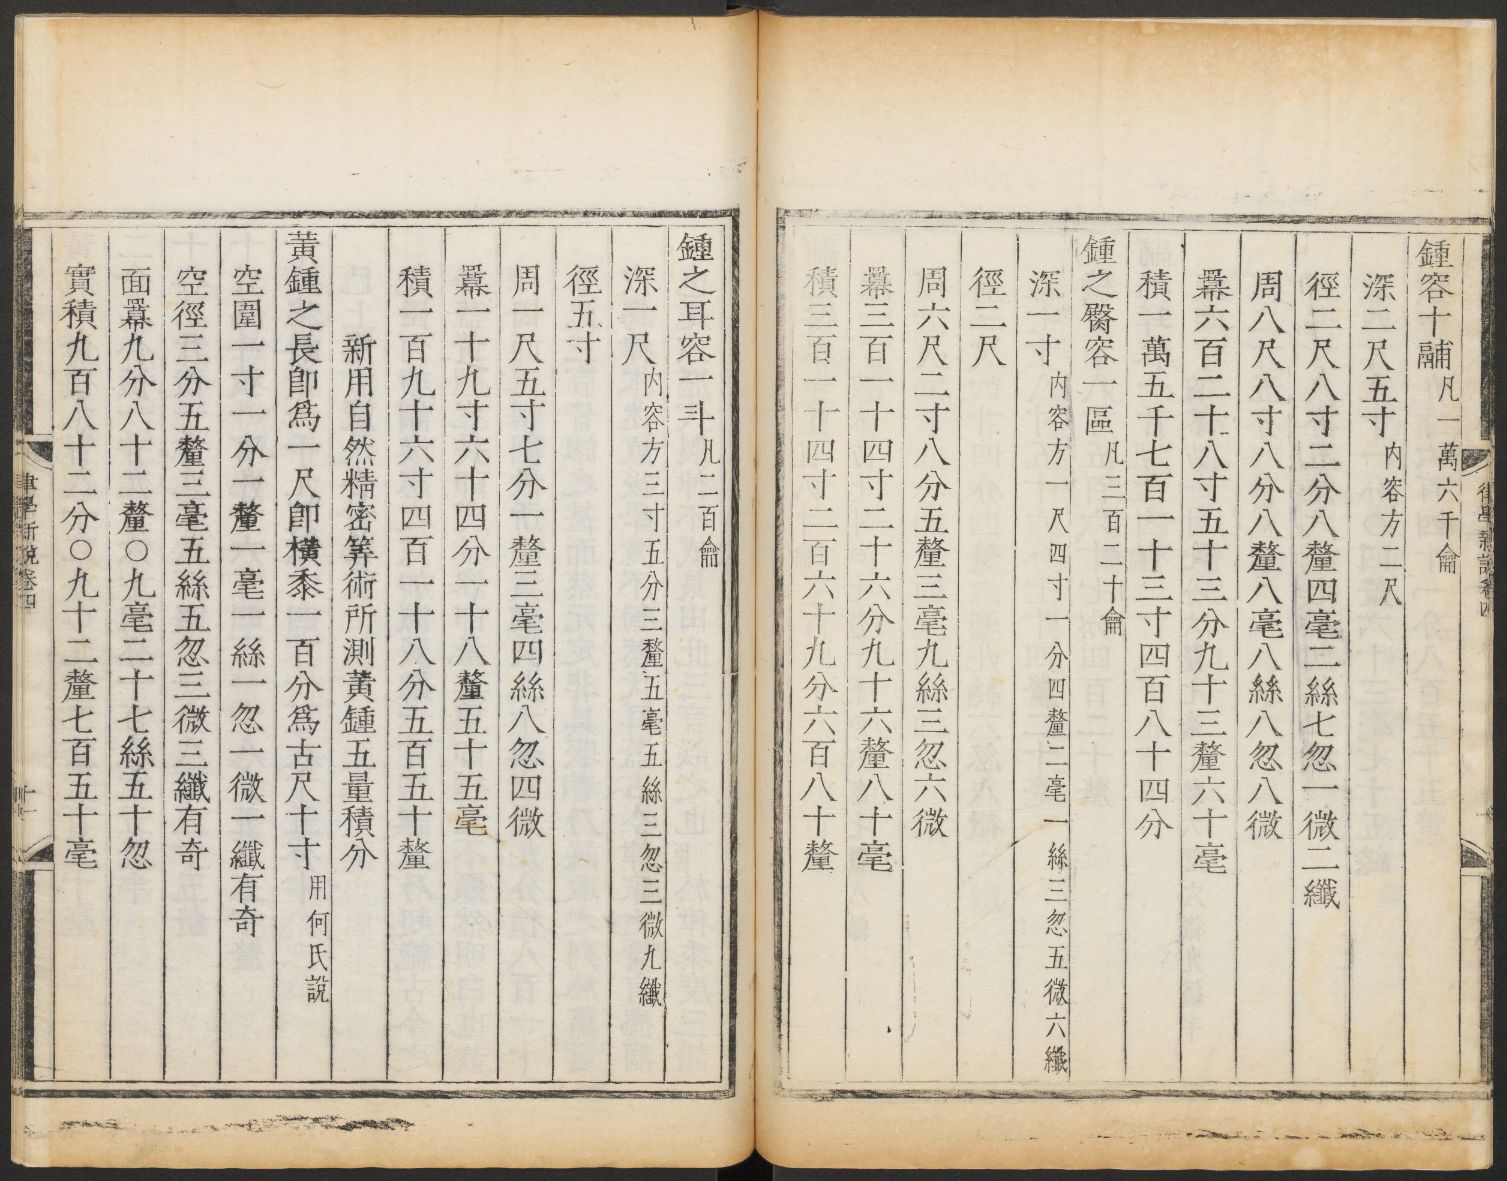 鍾容十鬴凡一萬六千龠
深二尺五寸內容方二尺
徑二尺八寸二分八釐四毫二絲七忽一微二纖
周八尺八寸八分八釐八毫八絲八忽八微
羃六百二十八寸五十三分九十三釐六十毫
積一萬五千七百一十三寸四百八十四分
鍾之臀容一區凡三百二十龠
深一寸內容方一尺四寸一分四釐二毫一絲三忽五微六纖
徑二尺
周六尺二寸八分五釐三毫九絲三忽六微
羃三百一十四寸二十六分九十六釐八十毫
積三百一十四寸二百六十九分六百八十釐
律學新說卷四
鍾之耳容一㪷凡二百龠
深一尺內容方三寸五分三釐五毫五絲三忽三微九纖
徑五寸
周一尺五寸七分一釐三毫四絲八忽四微
羃一十九寸六十四分一十八釐五十五毫
積一百九十六寸四百一十八分五百五十釐
新用自然精密筭術所測黃鍾五量積分
黃鍾之長卽爲一尺卽橫黍一百分爲古尺十寸用何氏說
空圍一寸一分一釐一毫一絲一忽一微一纖有奇
空徑三分五釐三毫五絲五忽三微三纖有奇
面羃九分八十二釐〇九毫二十七絲五十忽
實積九百八十二分〇九十二釐七百五十毫
律學新說卷四
十一